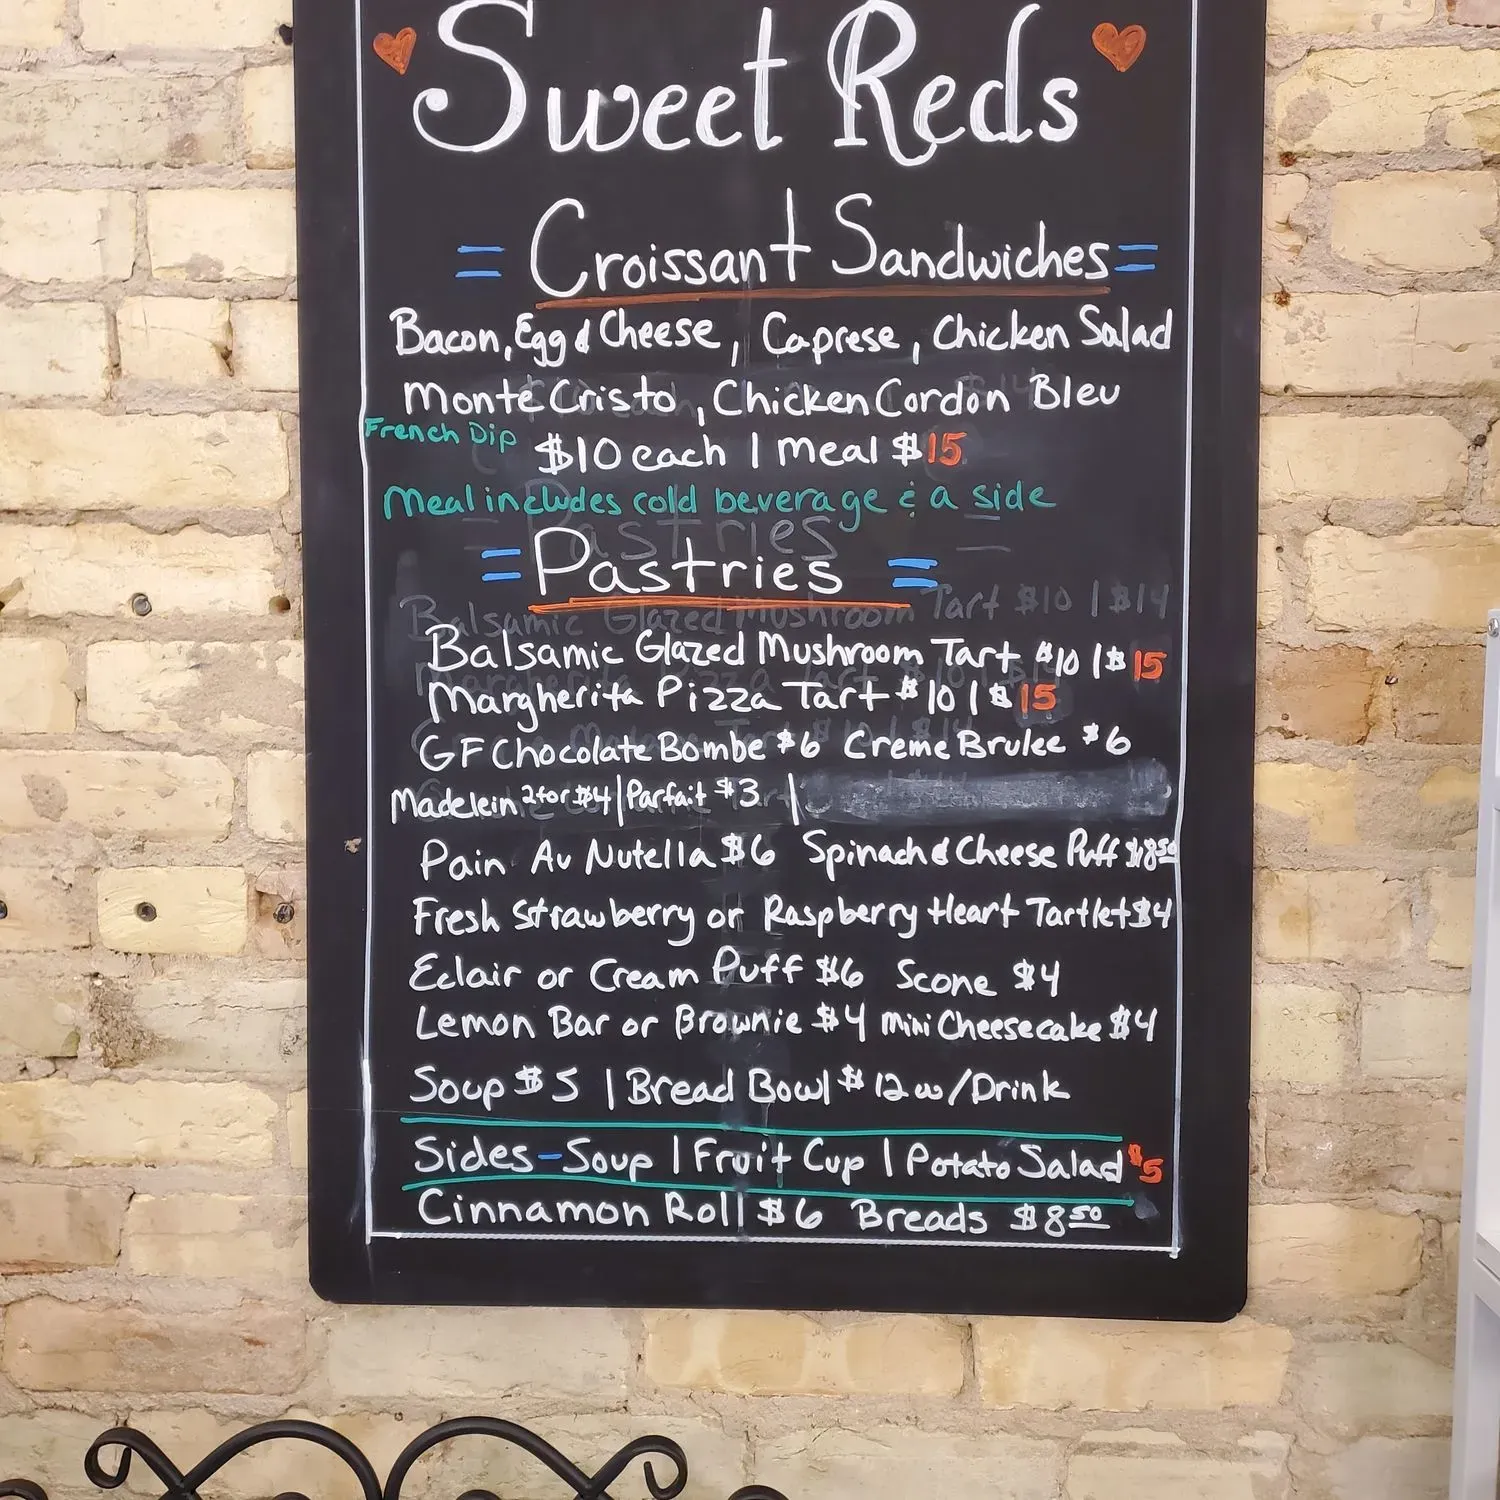 Sweet Reds
= Croissant Sandwiches =
Bacon, Egg & Cheese, Caprese, Chicken Salad
Monte Cristo, Chicken Cordon Bleu
French Dip
$10 each | Meal $15
Meal includes cold beverage & a side
= Pastries =
Balsamic Glazed Mushroom Tart $10 | $15
Margherita Pizza Tart $10 | $15
GF Chocolate Bombe $6 Creme Brulee $6
Madelein 2 for $4 | Parfait $3 |
Pain Au Nutella $6 Spinach & Cheese Puff $8.50
Fresh Strawberry or Raspberry Heart Tartlet $4
Eclair or Cream Puff $6 Scone $4
Lemon Bar or Brownie $4 Mini Cheesecake $4
Soup $5 | Bread Bowl $12 w/Drink
Sides - Soup | Fruit Cup | Potato Salad $5
Cinnamon Roll $6 Breads $8 50